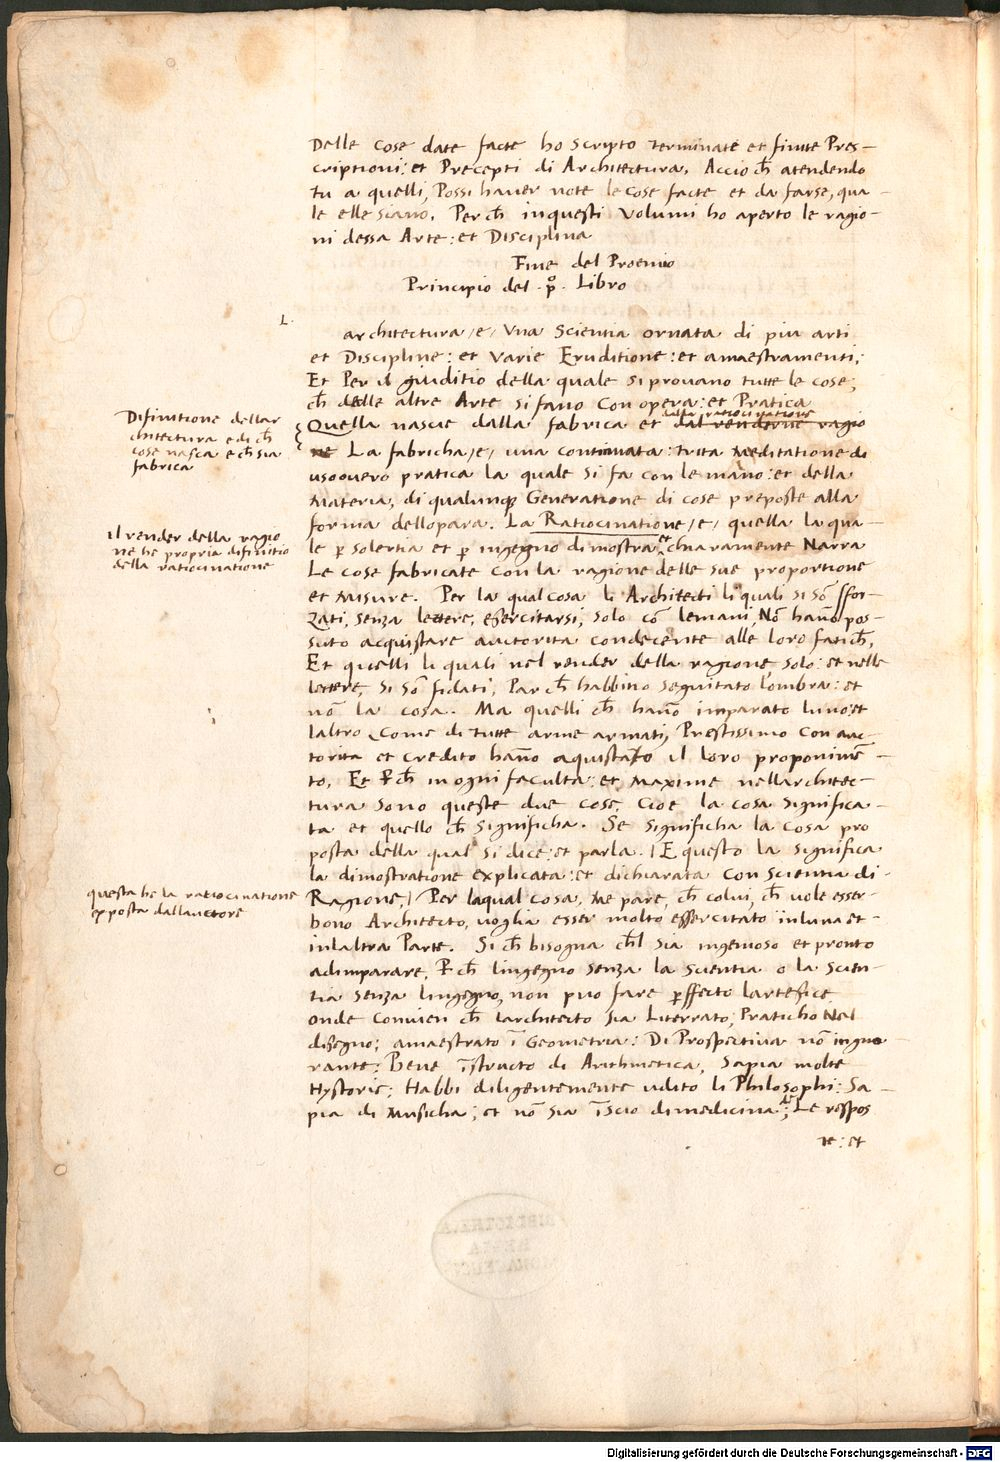 Delle cose date facte ho scripto terminate et finite Pres-
criptioni: et Precepti di Architectura, Accio ch̄ atendendo
tu a quelli, Possi haver note le cose facte et da farse, qua-
le elle siano, Per ch̄ in questi Volumi ho aperto le ragio-
ni dessa Arte: et Disciplina
Fine del Proemio
Principio del .pº. Libro
L.
architectura /e/ Una Scientia ornata di piu arti
et Discipline: et varie Eruditione: et amaestramenti,
Et Per il giuditio della quale si provano tutte le cose,
ch̄ delle altre Arte si fano Con opera: et Pratica
dalla ratiocinatione
Quella nascie dalla fabrica et dal renderne ragio
ne La fabricha /e/ una continuata: trita Meditatione di
uso overo pratica la quale si fa con le mano: et della
Materia, di qualunque Generatione di cose preposte alla
forma dellopara. La Ratiocinatione /e/ quella la qua-
le p̱ solertia et p̱ ingegno dimostra et chiaramente Narra
Le cose fabricate con la ragione delle sue proportione
et Misure. Per la qual cosa li Architecti li quali si sō sfor-
zati, senza lettere, exercitarsi, solo cō lemani, Nō hano pos-
suto acquistare auctorita condecente alle loro fatich̄,
Et quelli li quali nel render della ragione solo: et nelle
lettere, si sō fidati, Par ch̄ habbino seguitato lombra: et
nō la cosa. Ma quelli ch̄ hano imparato luno: et
laltro, Come di tutte arme armati, Prestissimo con auc-
torita et credito hano aquistato il loro proponimē-
to, Et P̱ch̄ in ogni faculta: et Maxime nellarchitec-
tura sono queste due cose, Cioe la cosa significa-
ta et quello ch̄ significha. Se significha la cosa pro
posta della qual si dice: et parla. / E questo la significa
la dimostratione explicata: et dichiarata con scientia di
Ragione, / Per laqual cosa, Me pare, ch̄ colui, ch̄ vole esser
bono Architecto, voglia esser molto essercitato inluna et
inlaltra Parte. Si ch̄ bisogna ch̄l sia ingenioso et pronto
adimparare, P̱ch̄ lingegno senza la scientia o la scien-
tia senza lingegno, non puo fare p̱ffecto lartefice
onde Convien ch̄ larchitecto sia Literrato, Praticho Nel
disegno; amaestrato ī Geometria: Di Prospectiva nō ingno
rante: Bene īstructo di Arithmetica, Sapia molte
Hystorie; Habbi diligentemente udito li Philosophi: Sa-
pia di Musicha; et nō sia īscio di medicina; Le respos
te: et
Difinitione dellar
chitectura e di ch̄
cose nasca e ch̄ sia
fabrica
il render della ragio
ne he propria difinitio
della ratiocinatione
questa he la ratiocinatione
exposta dallauctore
BIBLIOTHECA
REGIA
MONACENSIS
Digitalisierung gefördert durch die Deutsche Forschungsgemeinschaft - DFG